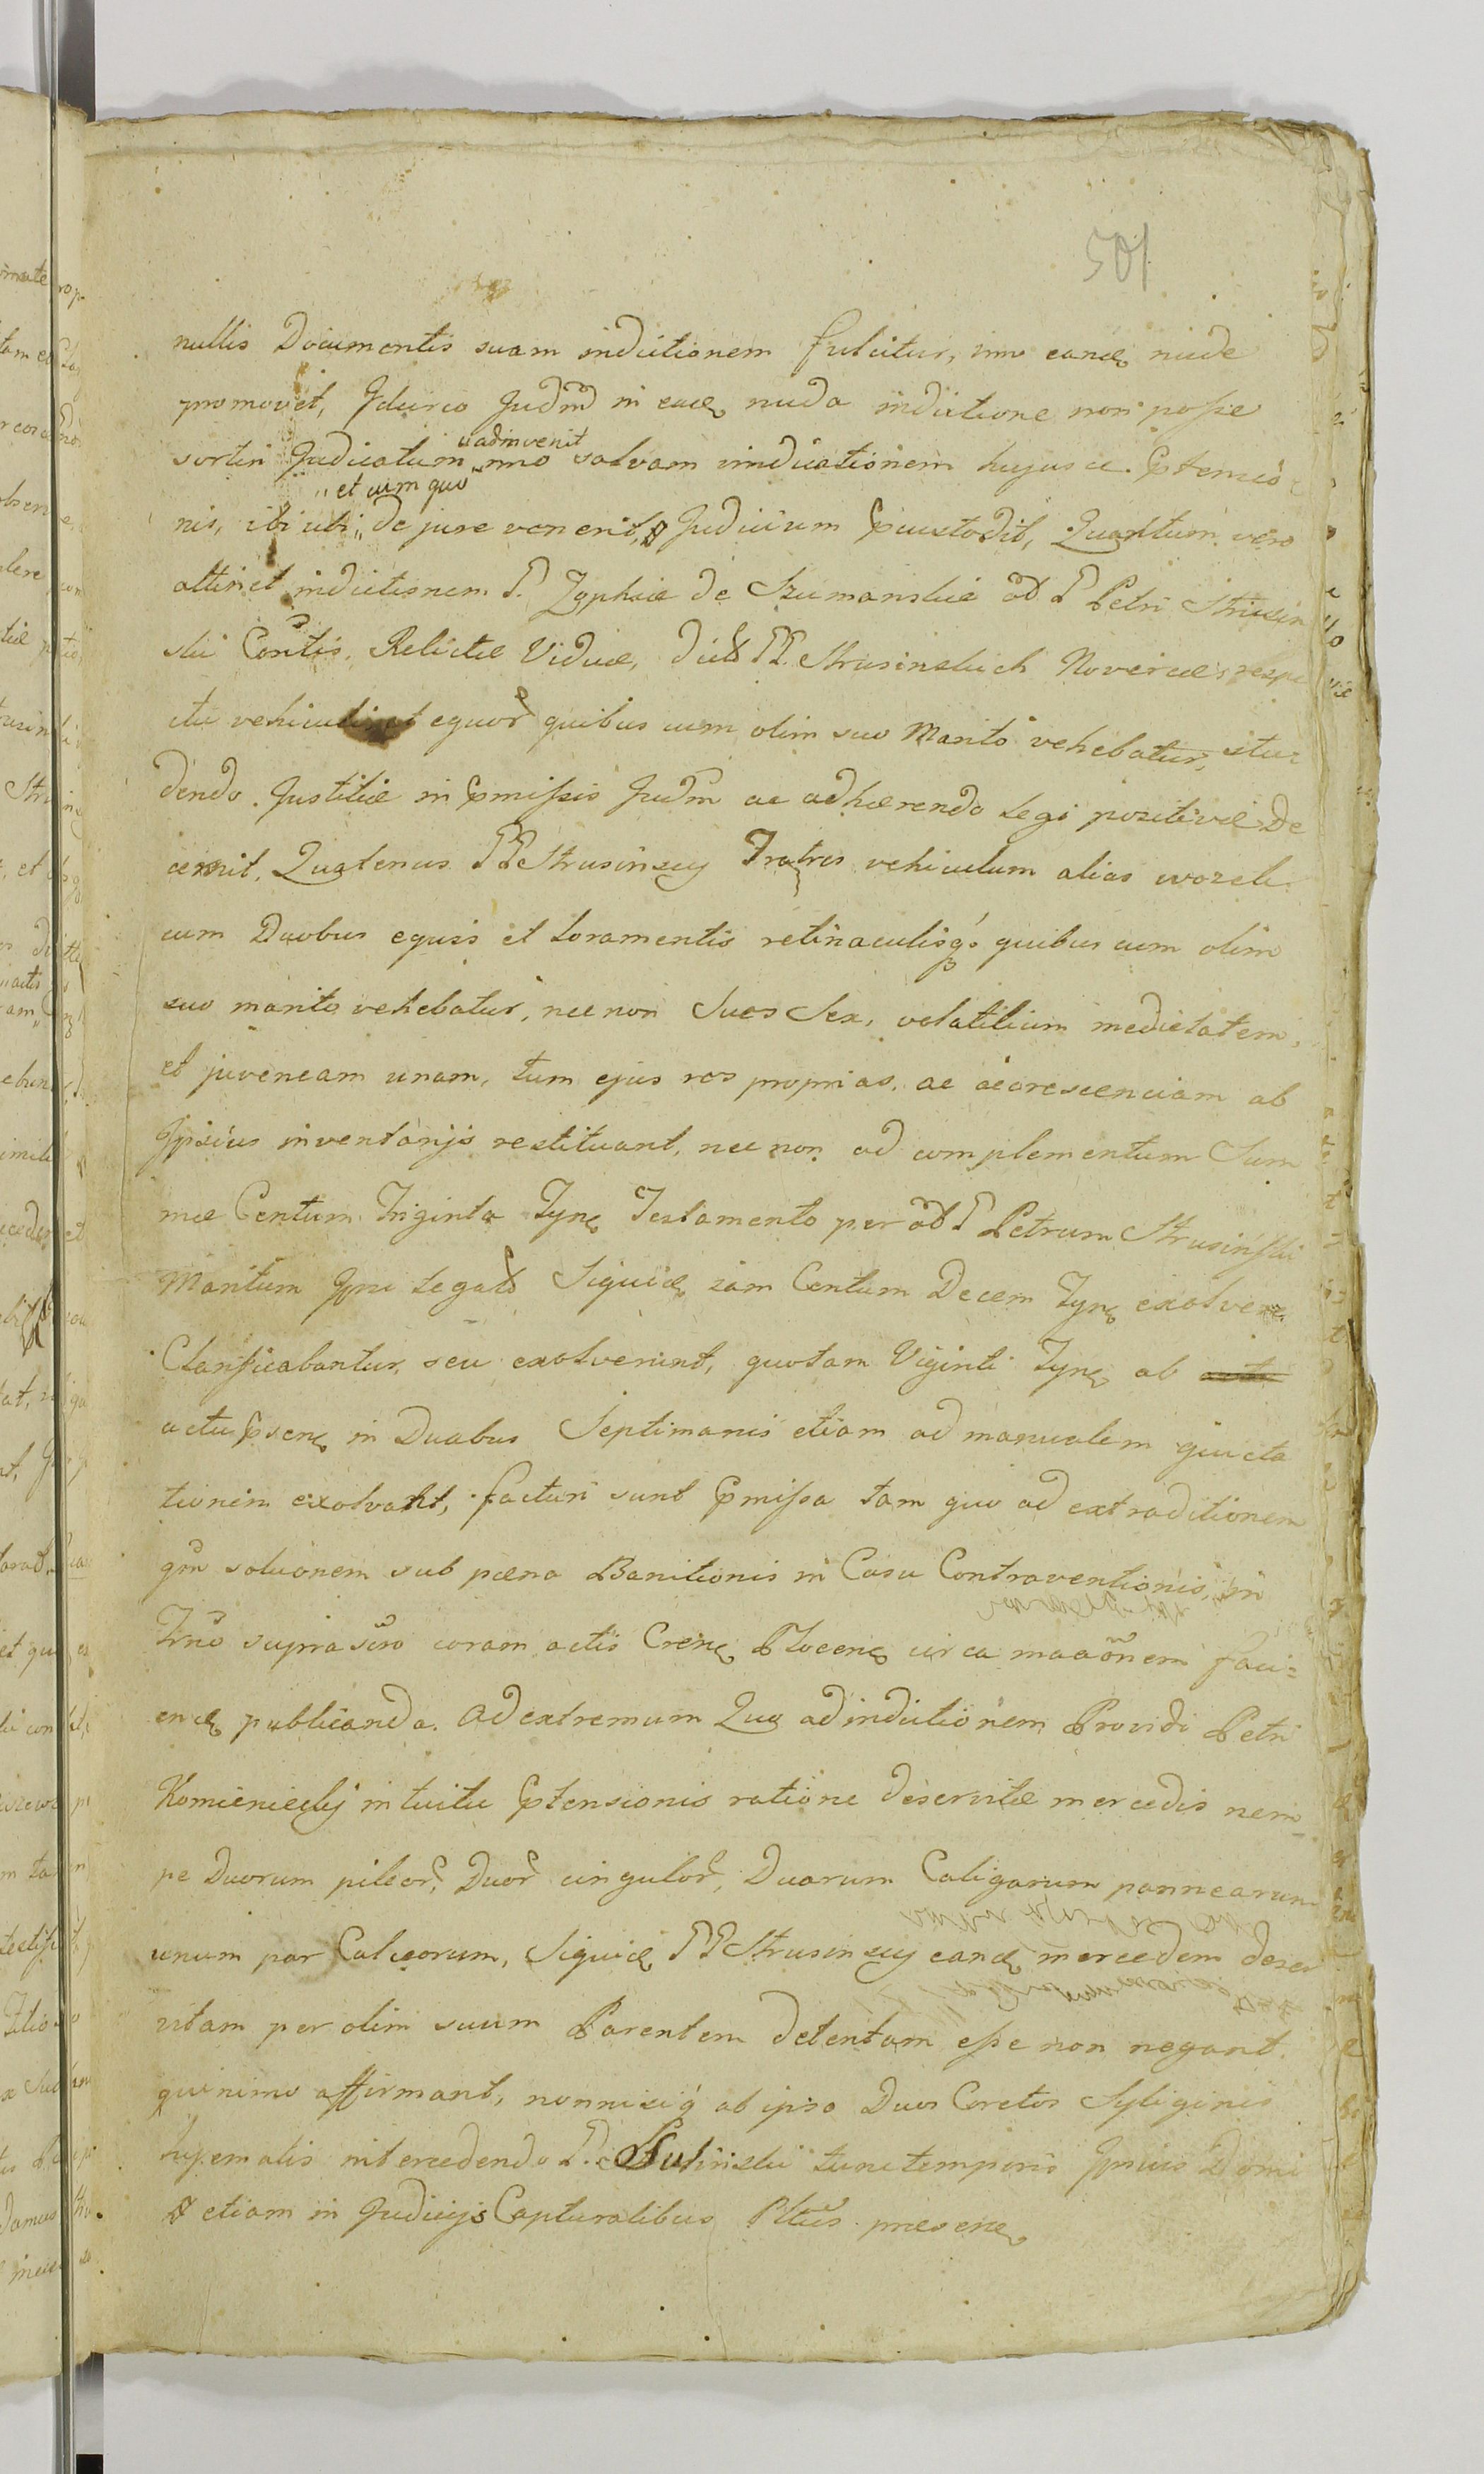 501
nullis Documentis suam indictionem fulcitur, imo eandꝫ nude
promovet, Idcirco Judm̃ in eadꝫ nuda indictione non posse
sortiri Judicatum „adinvenit„ imo salvam vindicationem hujusce. Ptensio
nis, ibi ubi „et cum quo„ de jure venerit, Judicium Pcustodit, Quantum vero
attinet indictionem P. Zophiæ de Szumanskie õd P Petri Strusin
ski Con̄tis, Relictæ Viduæ, dict PP. Strusinskich Novercæ, respe
ctu vehiculi et equor̃ quibus cum olim suo Marito vehebatur, stu=
dendo. Justitiæ in Pmissis Judm̃ ac adhærendo Legi positivæ De
cernit, Quatenus PP Strusinscy Fratres vehiculum alias wozek
cum Duobus equis et Loramentis retinaculisq3 quibus cum olim
suo marito vehebatur, nec non Sues Sex, volatilium medietatem,
et juvencam unam, tum ejus res proprias, ac accrescenciam ab
Ipsius inventarijs restituant, nec non ad complementum Sum
mæ Centum Triginta Tynꝫ Testamento per õd P Petrum Strusiński
Maritum Ipsi Legat Siquidꝫ iam Centum Decem Tynꝫ exolvere
Clarificabantur, seu exolverunt, quotam Viginti Tynꝫ ab
actu Psenꝫ in Duabus Septimanis etiam ad manualem quieta
tionem exolvant, facturi sunt Pmissa tam quo ad extraditionem
qm̃ solucionem sub pæna Banitionis in Casu Contraventionis, in
Trñ̃o supra scr̃o coram actis Crenꝫ Plocenꝫ circa maaõnem faci=
endꝫ publicanda. Ad extremum Quo ad indictionem Providi Petri
Komienieckij intuitu Ptensionis ratione deservitæ mercedis nem_
pe Duorum pileor̃, Duor̃ cingulor̃, Duarum Caligarum pannearum
unum par Calceorum, Siquidꝫ PP Strusinscy eandꝫ mercedem deser
vitam per olim suum Parentem detentam esse non negant.
quinimo affirmant, nonnisi q̃ ab ipso Duos Coretos Syliginis
hyemalis intercedendo P. tunc temporis Ipsius Domi
etiam in Judicijs Capturalibus Pltũs presenꝫ